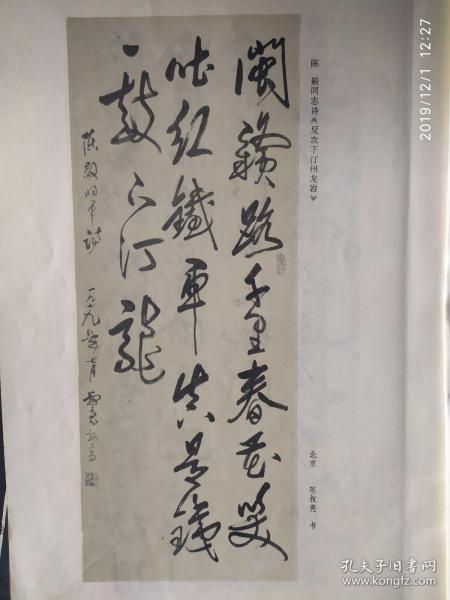 陈毅同志诗《反攻下汀州龙岩》
闽赣路千里春花笑
吐红铁军真是铁
一鼓下汀龙
陈毅同军诗
一九七九年
北京 陈叔亮 书
2019/12/1 12:27
孔夫子旧书网
www.kongfz.com